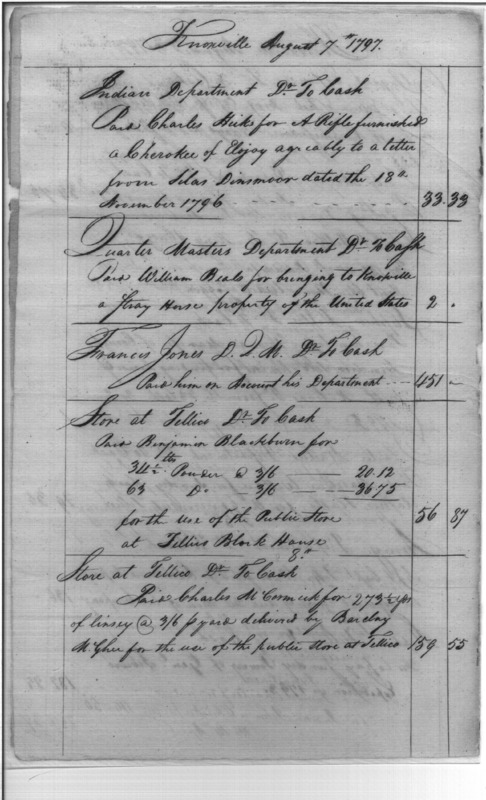 Knoxville August 7th 1797.
Indian Department Dr. To Cash
Paid Charles Hiks for A Rifle furnished
a Cherokee of Elijoy agreably to a letter
from Silas Dinsmoor dated the 18th
November 1796 33.33
Quarter Masters Department Dr. To Cash
Paid William Beals for bringing to Knoxville
a Stray Horse property of the United States 2 .
Francis Jones D. Q. M. Dr. To Cash
Paid him on Account his Department 451 -
Store at Tellico Dr. To Cash
Paid Benjamin Blackburn for
34½ lbs Powder @ 3/6 20.12
63 Do. - 3/6 36.75
for the use of the Public Store 56 87
at Tellico Block House
8th
Store at Tellico Dr. To Cash
Paid Charles McCormick for 273½ yds
of linsey @ 3/6 p yard delivered by Barclay
McGhee for the use of the public store at Tellico 159 55